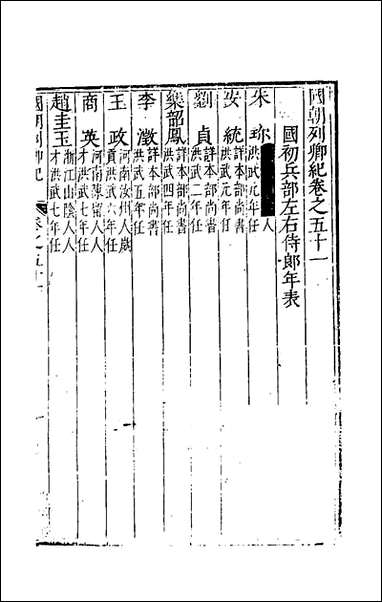 國朝列卿紀卷之五十一
國初兵部左右侍郎年表
朱珍 人
洪武元年任
安統 詳本部尚書
洪武元年任
劉貞 詳本部尚書
洪武二年任
樂韶鳳 詳本部尚書
洪武四年任
李澂 詳本部尚書
洪武五年任
王政 河南汝州人歲
貢洪武六年任
商英 河南陳留人人
才洪武七年任
趙圭玉 浙江山陰人人
才洪武七年任
國朝列卿紀 卷之五十一